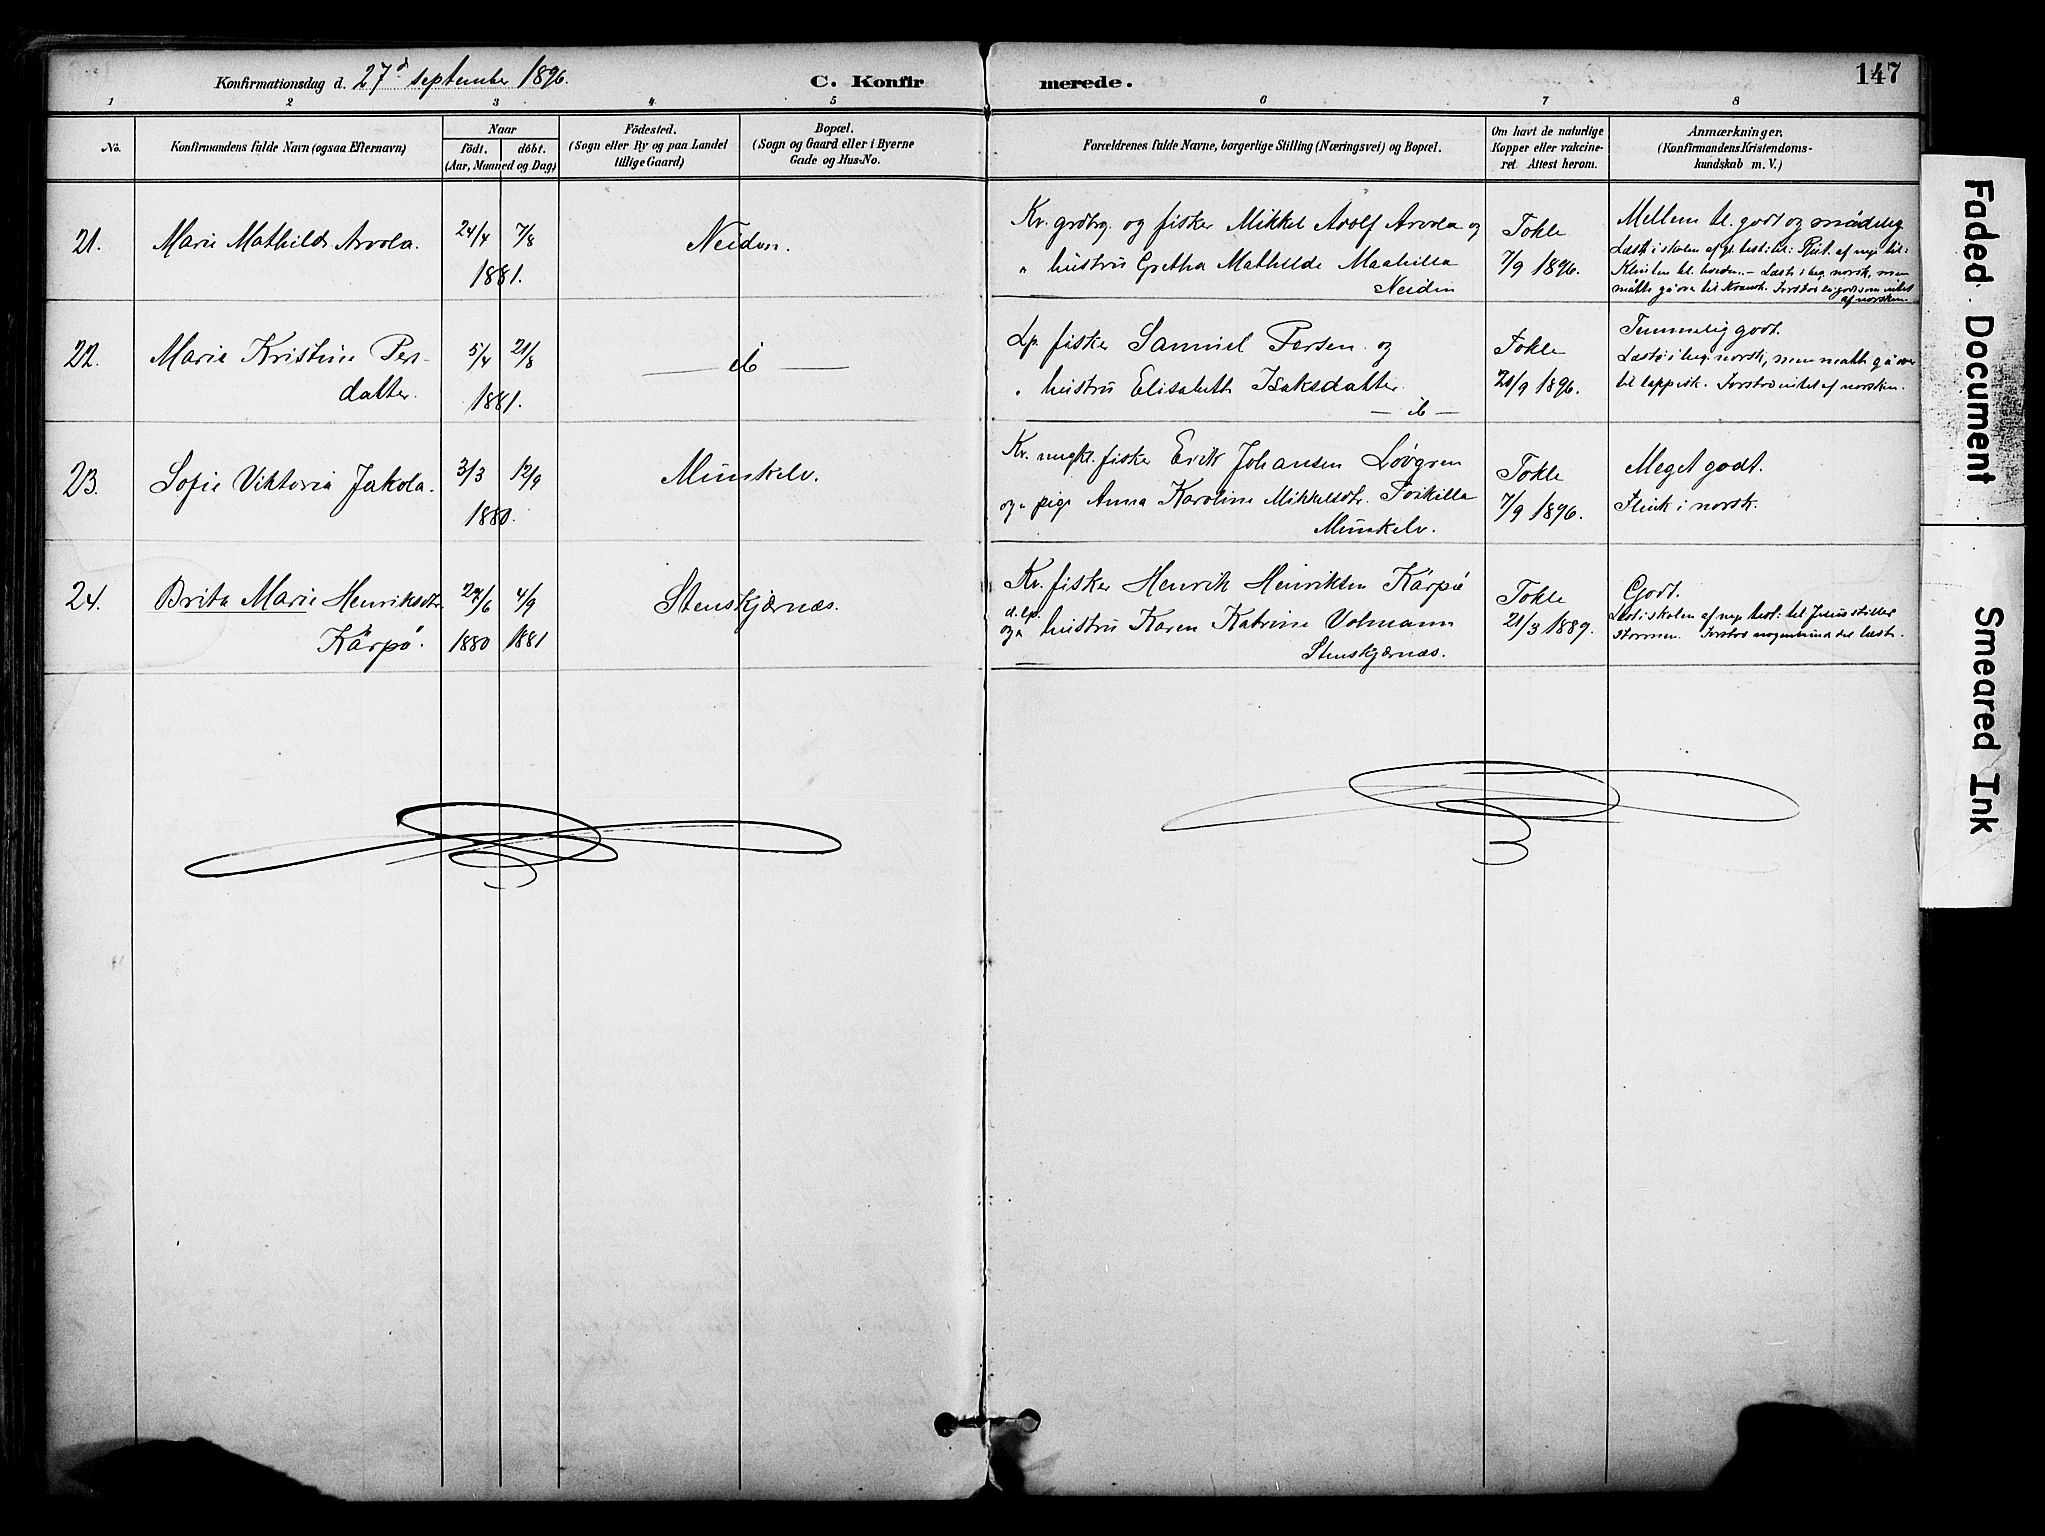 Konfirmationsdag d. 27d september 1896.
C. Konfirmerede.
147
1 2 3 4 5 6 7 8
No.
Konfirmandens fulde Navn (ogsaa Efternavn)
Naar
födt. döbt.
(Aar, Maaned og Dag)
Födested.
(Sogn eller By og paa Landet
tillige Gaard)
Bopæl.
(Sogn og Gaard eller i Byerne
Gade og Hus-No.
Forældrenes fulde Navne, borgerlige Stilling (Næringsvei) og Bopæl.
Om havt de naturlige
Kopper eller vakcine-
ret Attest herom.
Anmærkninger.
(Konfirmandens Kristendoms-
kundskab m. V.)
21.
Marie Mathilde Arvola.
24/4 7/8
1881.
Neiden.
Kv. grdbrg. og fisker Mikkel Adolf Arvola og
" hustru Gretha Mathilde Maahilla
Neiden
Tokle
7/9 1896.
Mellem tl. godt og mådelig
Læst i skolen af gl. test: til:
til læst i beg. norsk, men
måtte gå over til Kvænsk. Forstod
af norsken
22.
Marie Kristine Pers-
datter.
5/4 21/8
1881.
— ib —
Lp. fisker Samuel Persen og
" hustru Elisabeth Isaksdatter.
— ib —
Tokle
21/9 1896.
Temmelig godt.
Læste i beg. norsk, men måtte gå over
til lappisk. Forstod intet af norsken.
23.
Sofie Viktoria Jakola.
3/3 12/9
1880.
Munkelv.
Kv. ungkl. fisker Erik Johansen Lövgren
og " pige Anna Karoline Mikkelsdtr. Toikilla
Munkelv.
Tokle
7/9 1896.
Meget godt.
Flink i norsk.
24.
Brita Marie Henriksdtr.
Kärpö.
27/6 4/9
1880 1881
Stenskjærnæs.
Kv. fisker Henrik Henriksen Kärpö
d. lp.
og " hustru Karen Katrine Volmann
Stenskjærnæs.
Tokle
21/3 1889.
Godt.
Læst i skolen af nye test: til Jesus stiller
stormen. Forstod nogenlunde det læste.
Faded Document
Smeared Ink